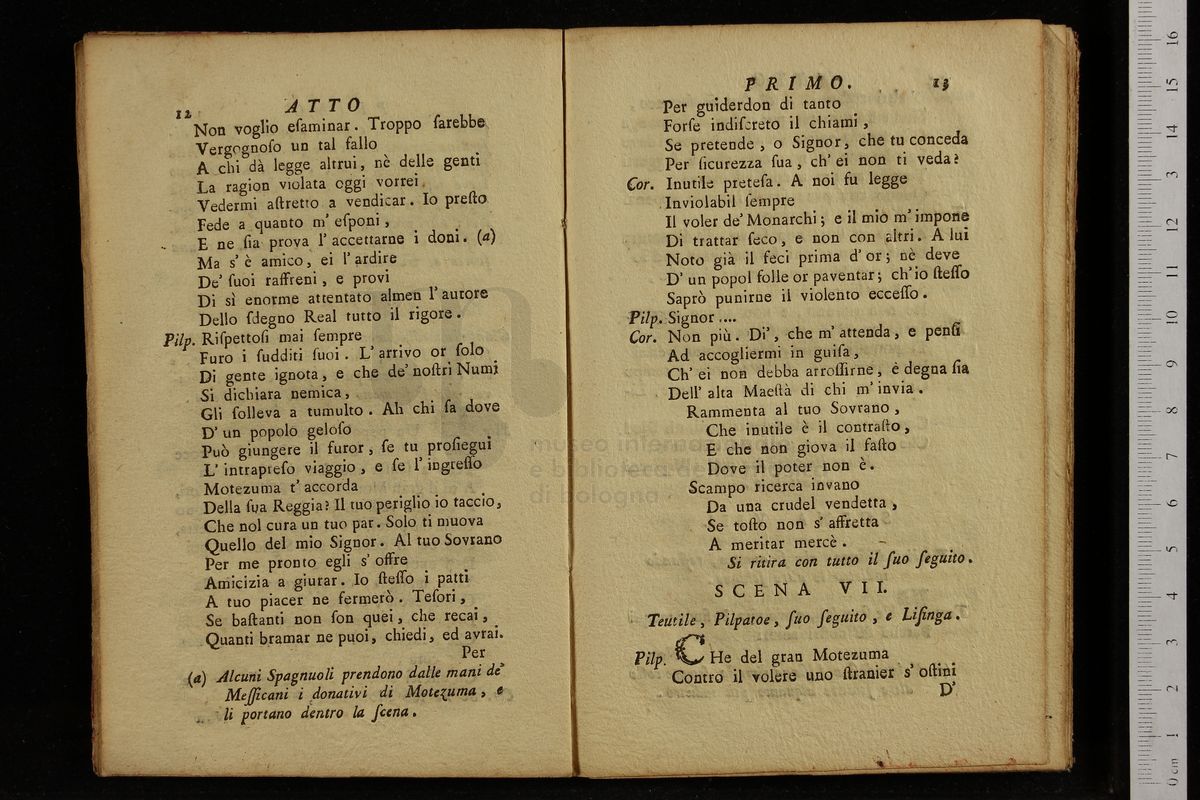 12 ATTO
Non voglio eſaminar. Troppo ſarebbe
Vergognoſo un tal fallo
A chi dà legge altrui, nè delle genti
La ragion violata oggi vorrei
Vedermi aſtretto a vendicar. Io preſto
Fede a quanto m' eſponi,
E ne ſia prova l' accettarne i doni. (a)
Ma s' è amico, ei l' ardire
De' ſuoi raffreni, e provi
Di sì enorme attentato almen l' autore
Dello ſdegno Real tutto il rigore.
Pilp. Riſpettoſi mai ſempre
Furo i ſudditi ſuoi. L' arrivo or ſolo
Di gente ignota, e che de' noſtri Numi
Si dichiara nemica,
Gli ſolleva a tumulto. Ah chi ſa dove
D' un popolo geloſo
Può giungere il furor, ſe tu proſiegui
L' intrapreſo viaggio, e ſe l' ingreſſo
Motezuma t' accorda
Della ſua Reggia? Il tuo periglio io taccio,
Che nol cura un tuo par. Solo ti muova
Quello del mio Signor. Al tuo Sovrano
Per me pronto egli s' offre
Amicizia a giurar. Io ſteſſo i patti
A tuo piacer ne fermerò. Teſori,
Se baſtanti non ſon quei, che recai,
Quanti bramar ne puoi, chiedi, ed avrai.
Per
(a) Alcuni Spagnuoli prendono dalle mani de'
Meſſicani i donativi di Motezuma, e
li portano dentro la ſcena.
PRIMO. 13
Per guiderdon di tanto
Forſe indiſcreto il chiami,
Se pretende, o Signor, che tu conceda
Per ſicurezza ſua, ch' ei non ti veda?
Cor. Inutile preteſa. A noi fu legge
Inviolabil ſempre
Il voler de' Monarchi; e il mio m' impone
Di trattar ſeco, e non con altri. A lui
Noto già il feci prima d' or; nè deve
D' un popol folle or paventar; ch' io ſteſſo
Saprò punirne il violento ecceſſo.
Pilp. Signor ....
Cor. Non più. Di', che m' attenda, e penſi
Ad accogliermi in guiſa,
Ch' ei non debba arroſſirne, e degna ſia
Dell' alta Maeſtà di chi m' invia.
Rammenta al tuo Sovrano,
Che inutile è il contraſto,
E che non giova il faſto
Dove il poter non è.
Scampo ricerca invano
Da una crudel vendetta,
Se toſto non s' affretta
A meritar mercè.
Si ritira con tutto il ſuo ſeguito.
SCENA VII.
Teutile, Pilpatoe, ſuo ſeguito, e Liſinga.
Pilp. CHe del gran Motezuma
Contro il volere uno ſtranier s' oſtini
D'
museo internazionale
e biblioteca della musica
di bologna
0 cm 1 2 3 4 5 6 7 8 9 10 11 12 13 14 15 16